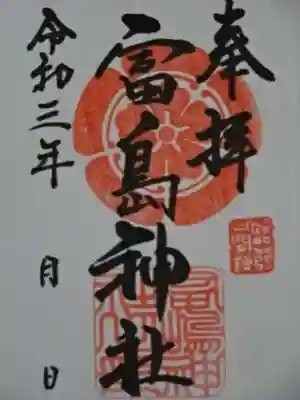 奉拝
富島神社
令和三年 月 日